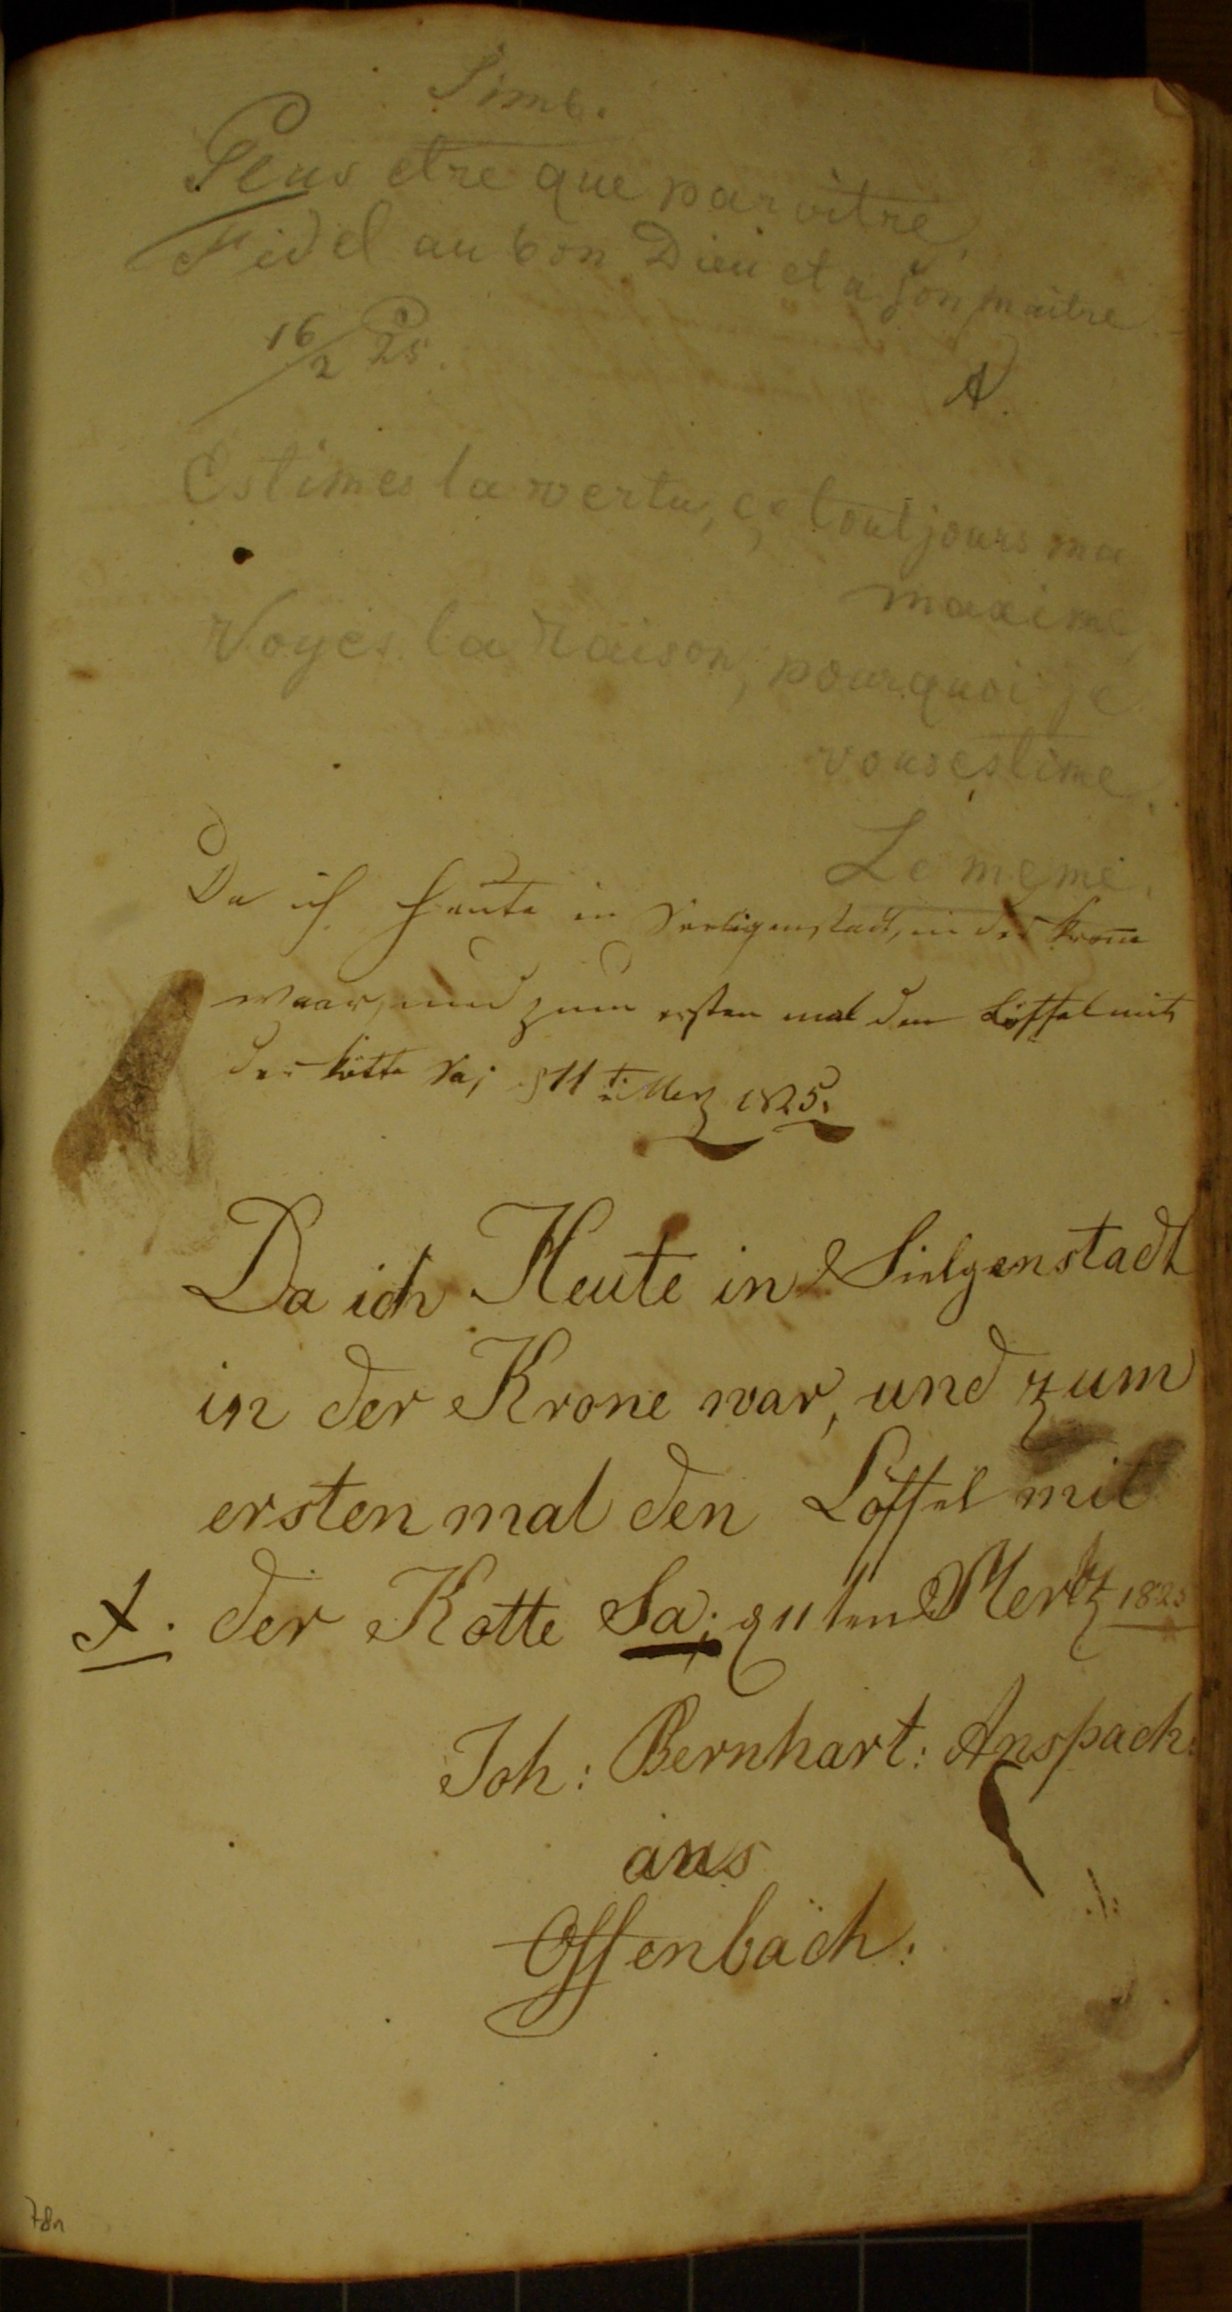 Simb.
Plus etre que parvitre,
Fidel au bon Dieu et a son maitre
16/2 25.
A.
Estimes la vertu, ce toutjours ma
maxime,
Voyes la raison, pourquoi je
vous estime.
Le meme.
Da ich heute in Seeligenstadt, in der Krone
waar, und zum ersten mal den Löffel mit
der Kötte sa; d 11t: Merz 1825.
Da ich Heute in Sielgenstadt
in der Krone war, und zum
ersten mal den Löffel mit
der Kotte Sa; d 11ten Mertz 1825
Joh: Bernhart: Anspach:
aus
Offenbach:
78r